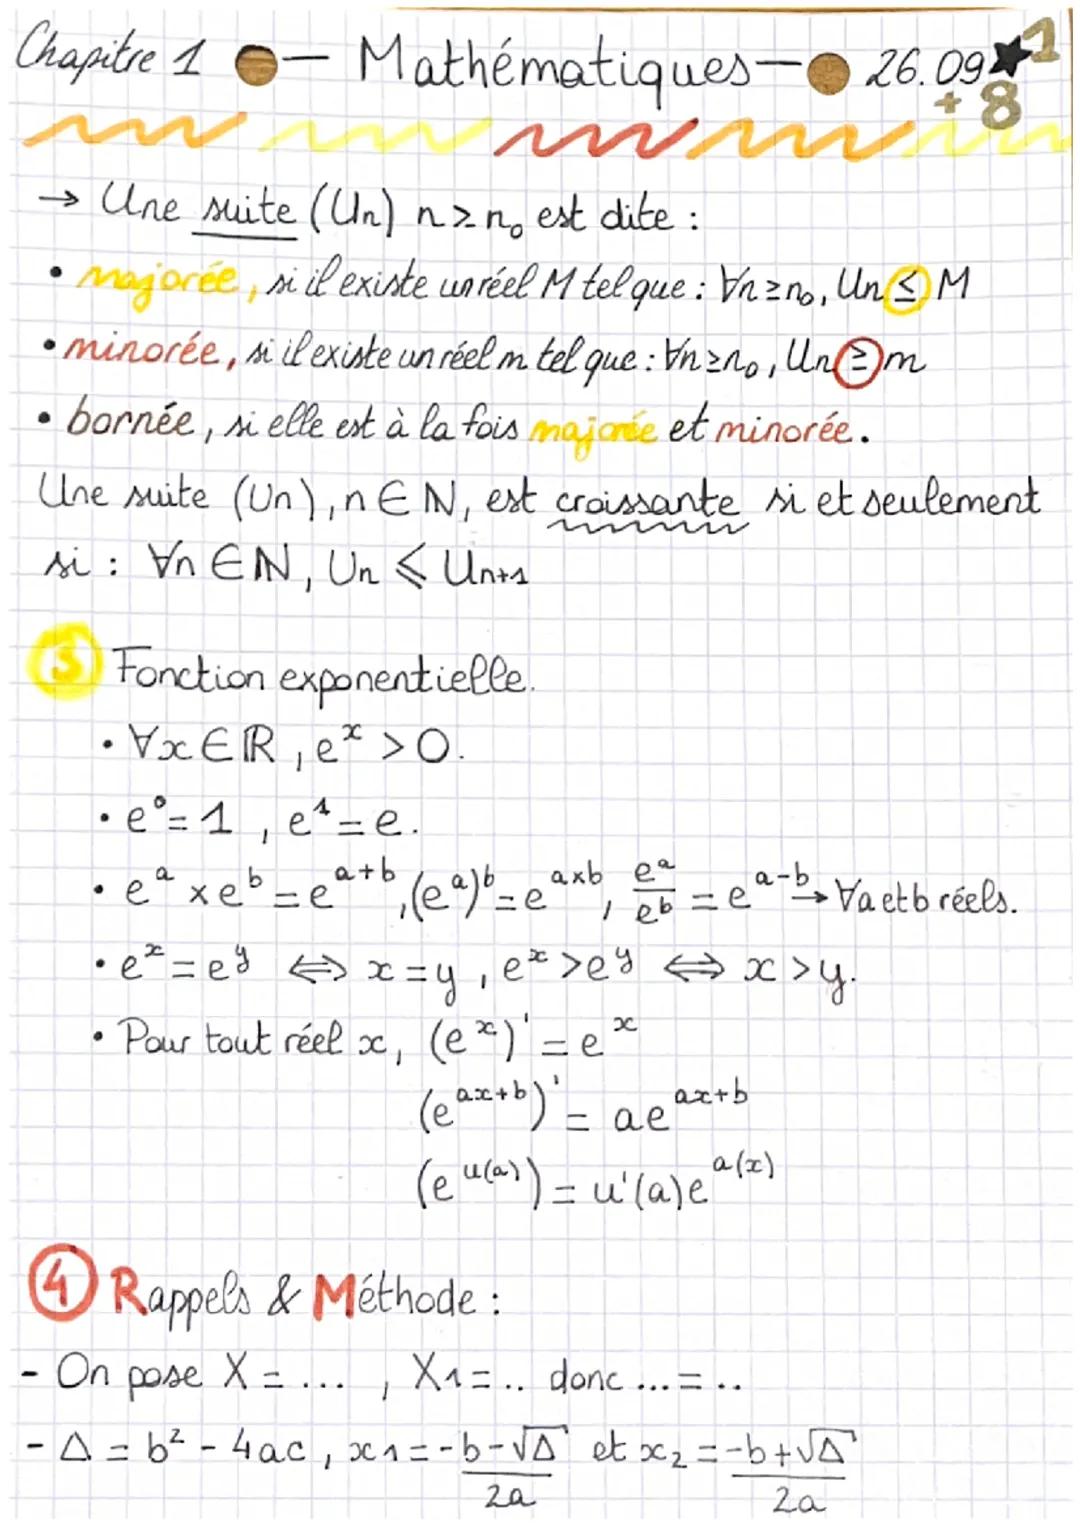 Chapitre 1 — Mathématiques — 26.09 ★1
+8
→ Une suite (Un) n≥n₀ est dite :
• majorée, si il existe un réel M tel que : ∀n≥n₀, Un ≤ M
• minorée, si il existe un réel m tel que : ∀n≥n₀, Un ≥ m
• bornée, si elle est à la fois majorée et minorée.
Une suite (Un), n ∈ ℕ, est croissante si et seulement
si : ∀n ∈ ℕ, Un ⩽ Un+1
3 Fonction exponentielle.
• ∀x ∈ ℝ, e^x > 0.
• e^0 = 1, e^1 = e.
• e^a × e^b = e^(a+b), (e^a)^b = e^(a×b), e^a/e^b = e^(a-b) → ∀a et b réels.
• e^x = e^y ⟺ x = y, e^x > e^y ⟺ x > y.
• Pour tout réel x, (e^x)' = e^x
(e^(ax+b))' = ae^(ax+b)
(e^(u(a))) = u'(a)e^(a(x))
4 Rappels & Méthode :
- On pose X = ... , X1 = .. donc ... = ..
- Δ = b² - 4ac, x1 = (-b-√Δ)/2a et x2 = (-b+√Δ)/2a